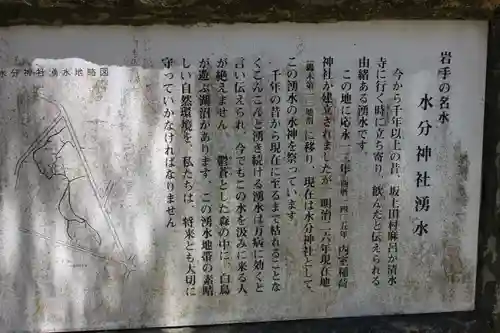 岩手の名水
水分神社湧水
今から千年以上の昔、坂上田村麻呂が清水
寺に行く時に立ち寄り、飲んだと伝えられる
由緒ある湧水です。
この地に応永一二年(西暦一四〇五年)内宮稲荷
神社が建立されましたが、明治二六年現在地
に移り、現在は水分神社として、
この湧水の水神を祭っています。
千年の昔から現在に至るまで枯れることな
くこんこんと湧き続ける湧水は万病に効くと
言い伝えられ、今でもこの水を汲みに来る人
が絶えません。鬱蒼とした森の中に、白鳥
が遊ぶ湖沼があります。この湧水地帯の素晴
しい自然環境を、私たちは、将来とも大切に
守っていかなければなりません
水分神社湧水地略図